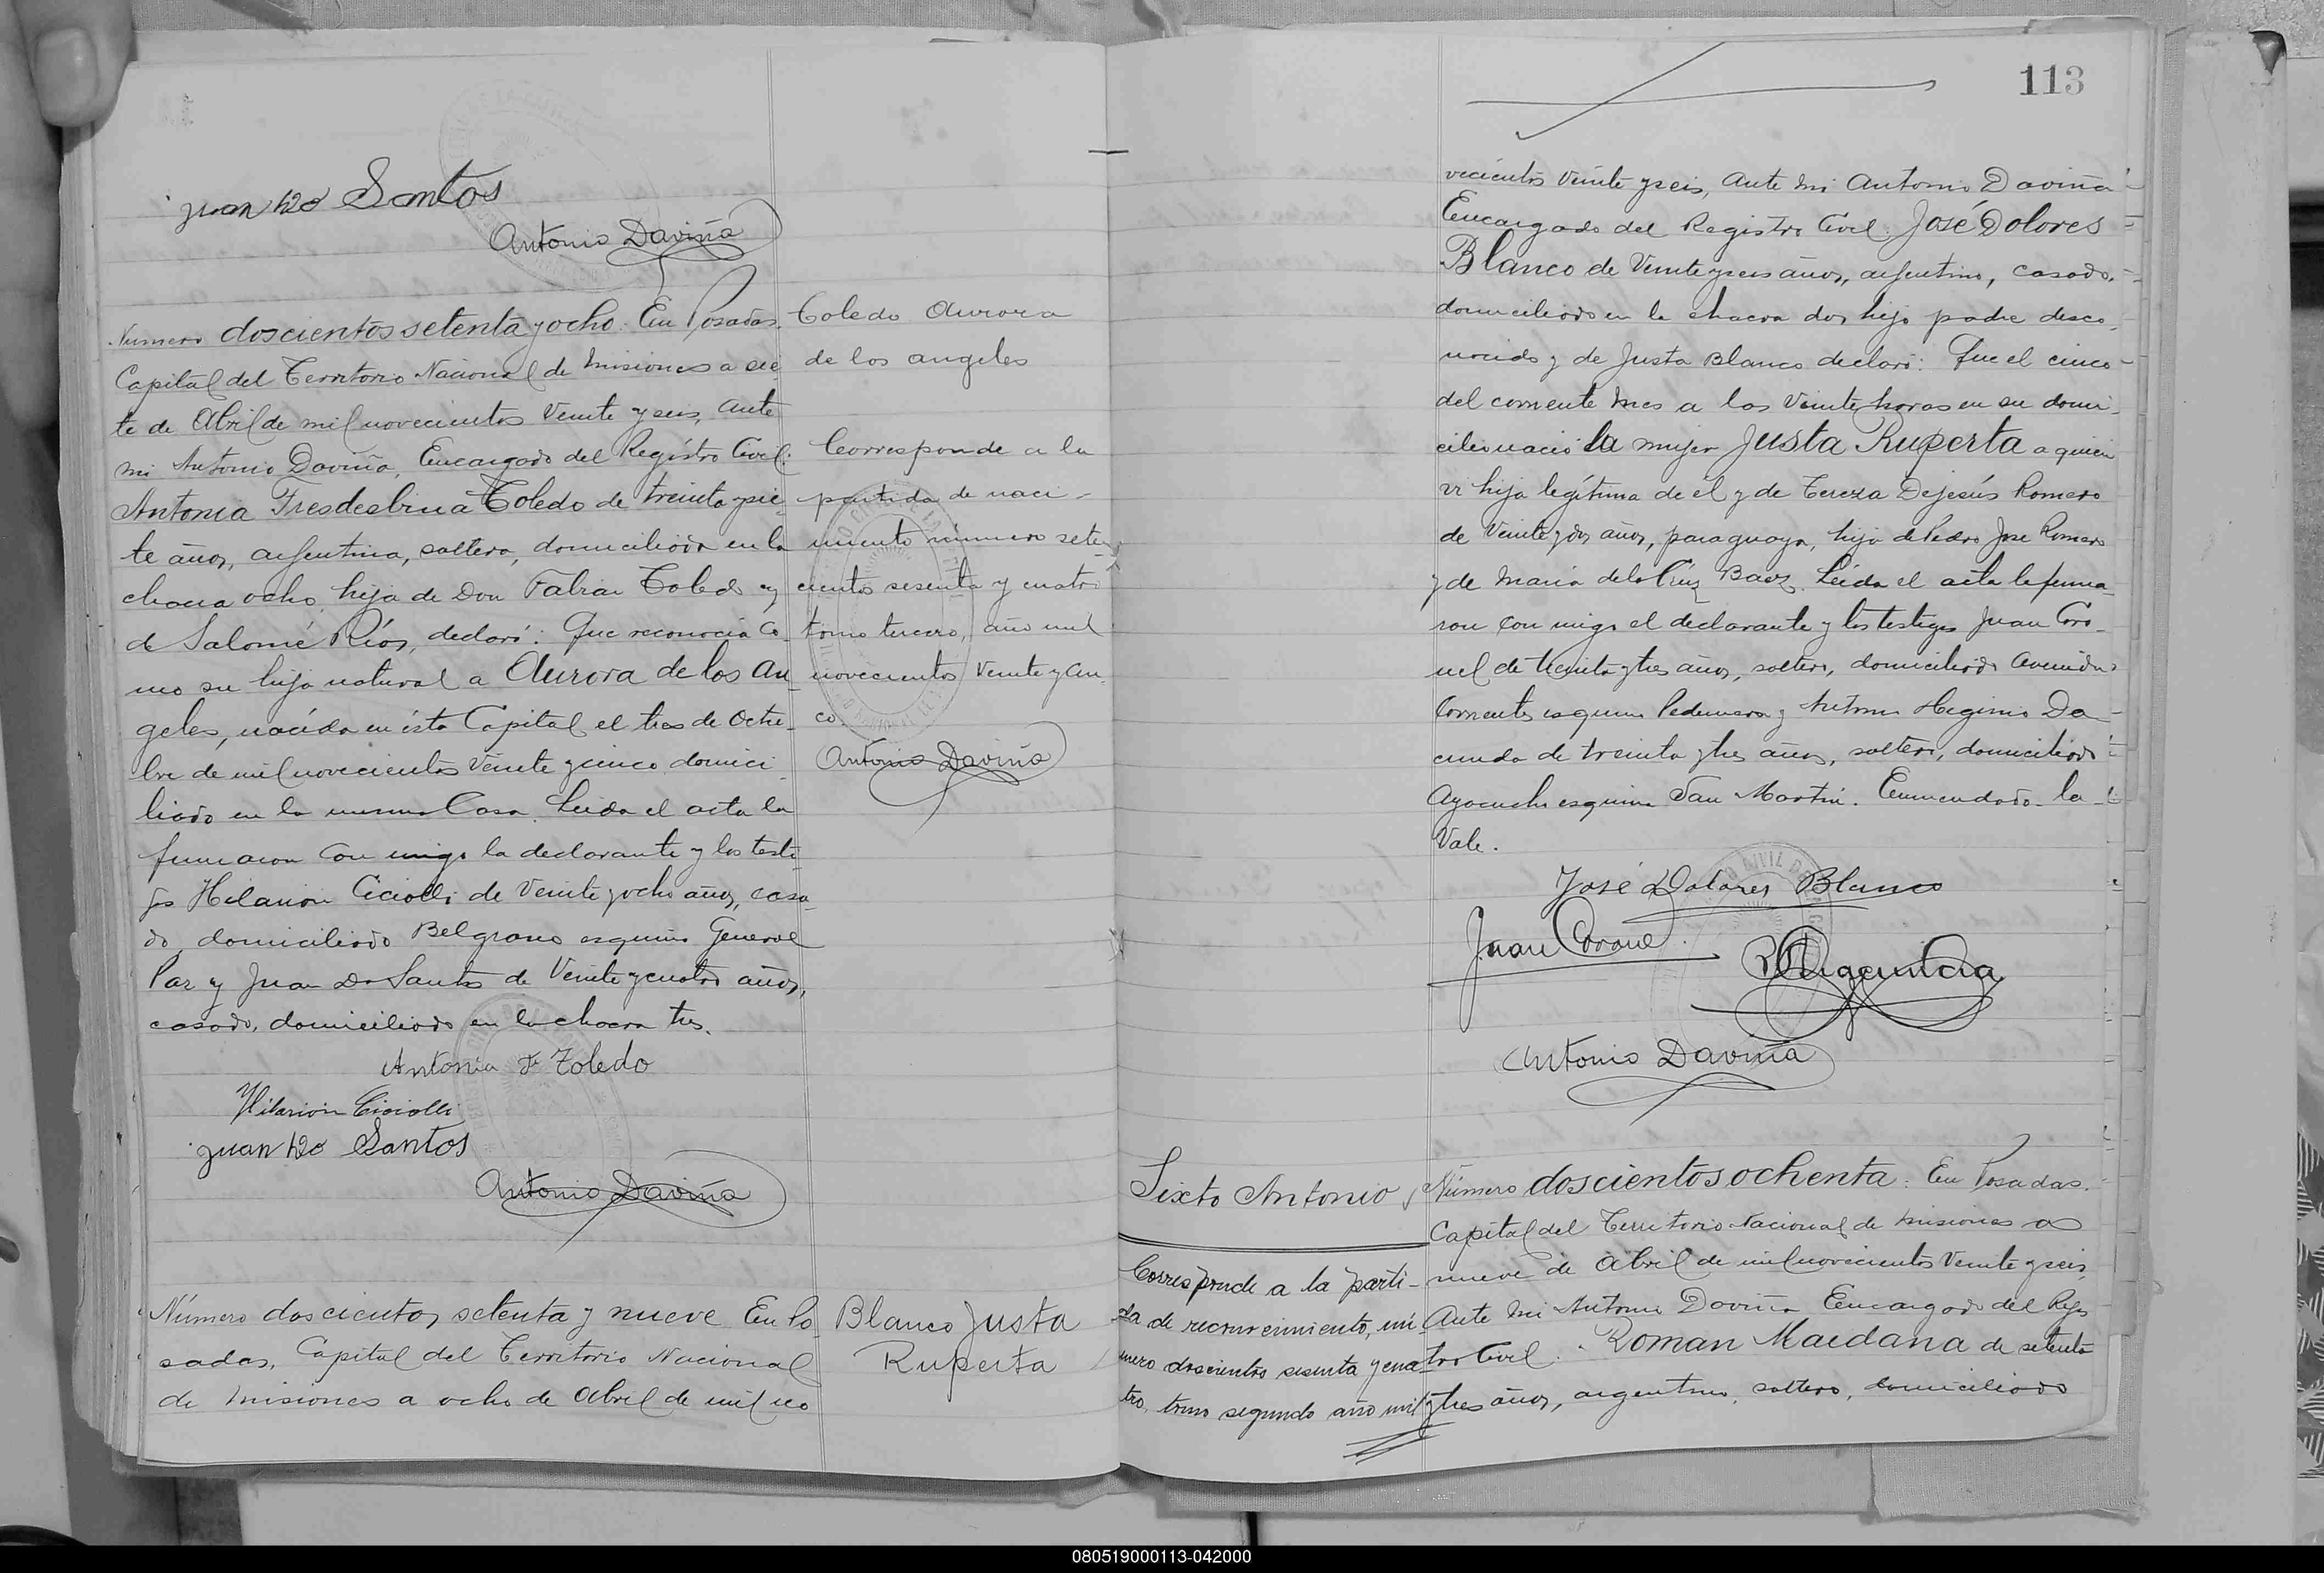 Juan Do Santos
Antonio Daviña
Número doscientos setenta y ocho: En Posadas.
Capital del Territorio Nacional de Misiones a sie
te de Abril de mil novecientos veinte y seis, Ante
mi Antonio Daviña, Encargado del Registro Civil:
Antonia Toledo de treinta y sie
te años, argentina, soltera, domiciliada en la
chacra ocho, hija de Don Fabian Toledo y
de Salomé Ríos, declaró: Que reconocía co
mo su hija natural a Aurora de los An
geles, nacida en ésta Capital el tres de Octu
bre de mil novecientos veinte y cinco domici
liado en la misma Casa. Leida el acta la
firmaron con migo la declarante y los testi
gos Hilarion Ciciolli de veinte y ocho años, casa
do, domiciliado Belgrano esquina General
Paz y Juan Do Santos de veinte y cuatro años,
casado, domiciliado en la chacra tres.
Antonia F. Toledo
Hilarion Ciciolli
Juan Do Santos
Antonio Daviña
Número doscientos setenta y nueve En Po
sadas, Capital del Territorio Nacional
de Misiones a ocho de Abril de mil no
Toledo Aurora
de los Angeles
Corresponde a la
partida de naci-
miento número sete
cientos sesenta y cuatro
tomo tercero, año mil
novecientos veinte y cin
co.
Antonio Daviña
Blanco Justa
Ruperta
113
vecientos veinte y seis, Ante mi Antonio Daviña
Encargado del Registro Civil: José Dolores
Blanco de veinte y seis años, argentino, casado,
domiciliado en la chacra dos hijo padre desco
nocido y de Justa Blanco declaró: Que el cinco
del corriente mes a las veinte horas en su domi
cilio nació la mujer Justa Ruperta a quien
vi hija legítima de él y de Tereza Dejesús Romero
de veinte y dos años, paraguaya, hija de Pedro Jose Romero
y de Maria dela Cruz Baez. Leida el acta la firma
ron con migo el declarante y los testigos Juan Coro
nel de treinta y tres años, soltero, domiciliado Avenida
Corrientes esquina Pedernera y Antonio Higinio Da
cunda de treinta y tres años, soltero, domiciliado
Ayacucho esquina San Martin. Enmendado - la -
Vale.
José Dolores Blanco
Juan Coronel
Antonio Daviña
Sixto Antonio
Corresponde a la parti-
da de reconocimiento, nú
mero doscientos sesenta y cua
tro, tomo segundo año mil
Número doscientos ochenta: En Posadas.
Capital del Territorio Nacional de Misiones a
nueve de Abril de mil novecientos veinte y seis,
Ante mi Antonio Daviña Encargado del Regis
tro Civil: Roman Maidana de setenta
y tres años, argentino, soltero, domiciliado
080519000113-042000